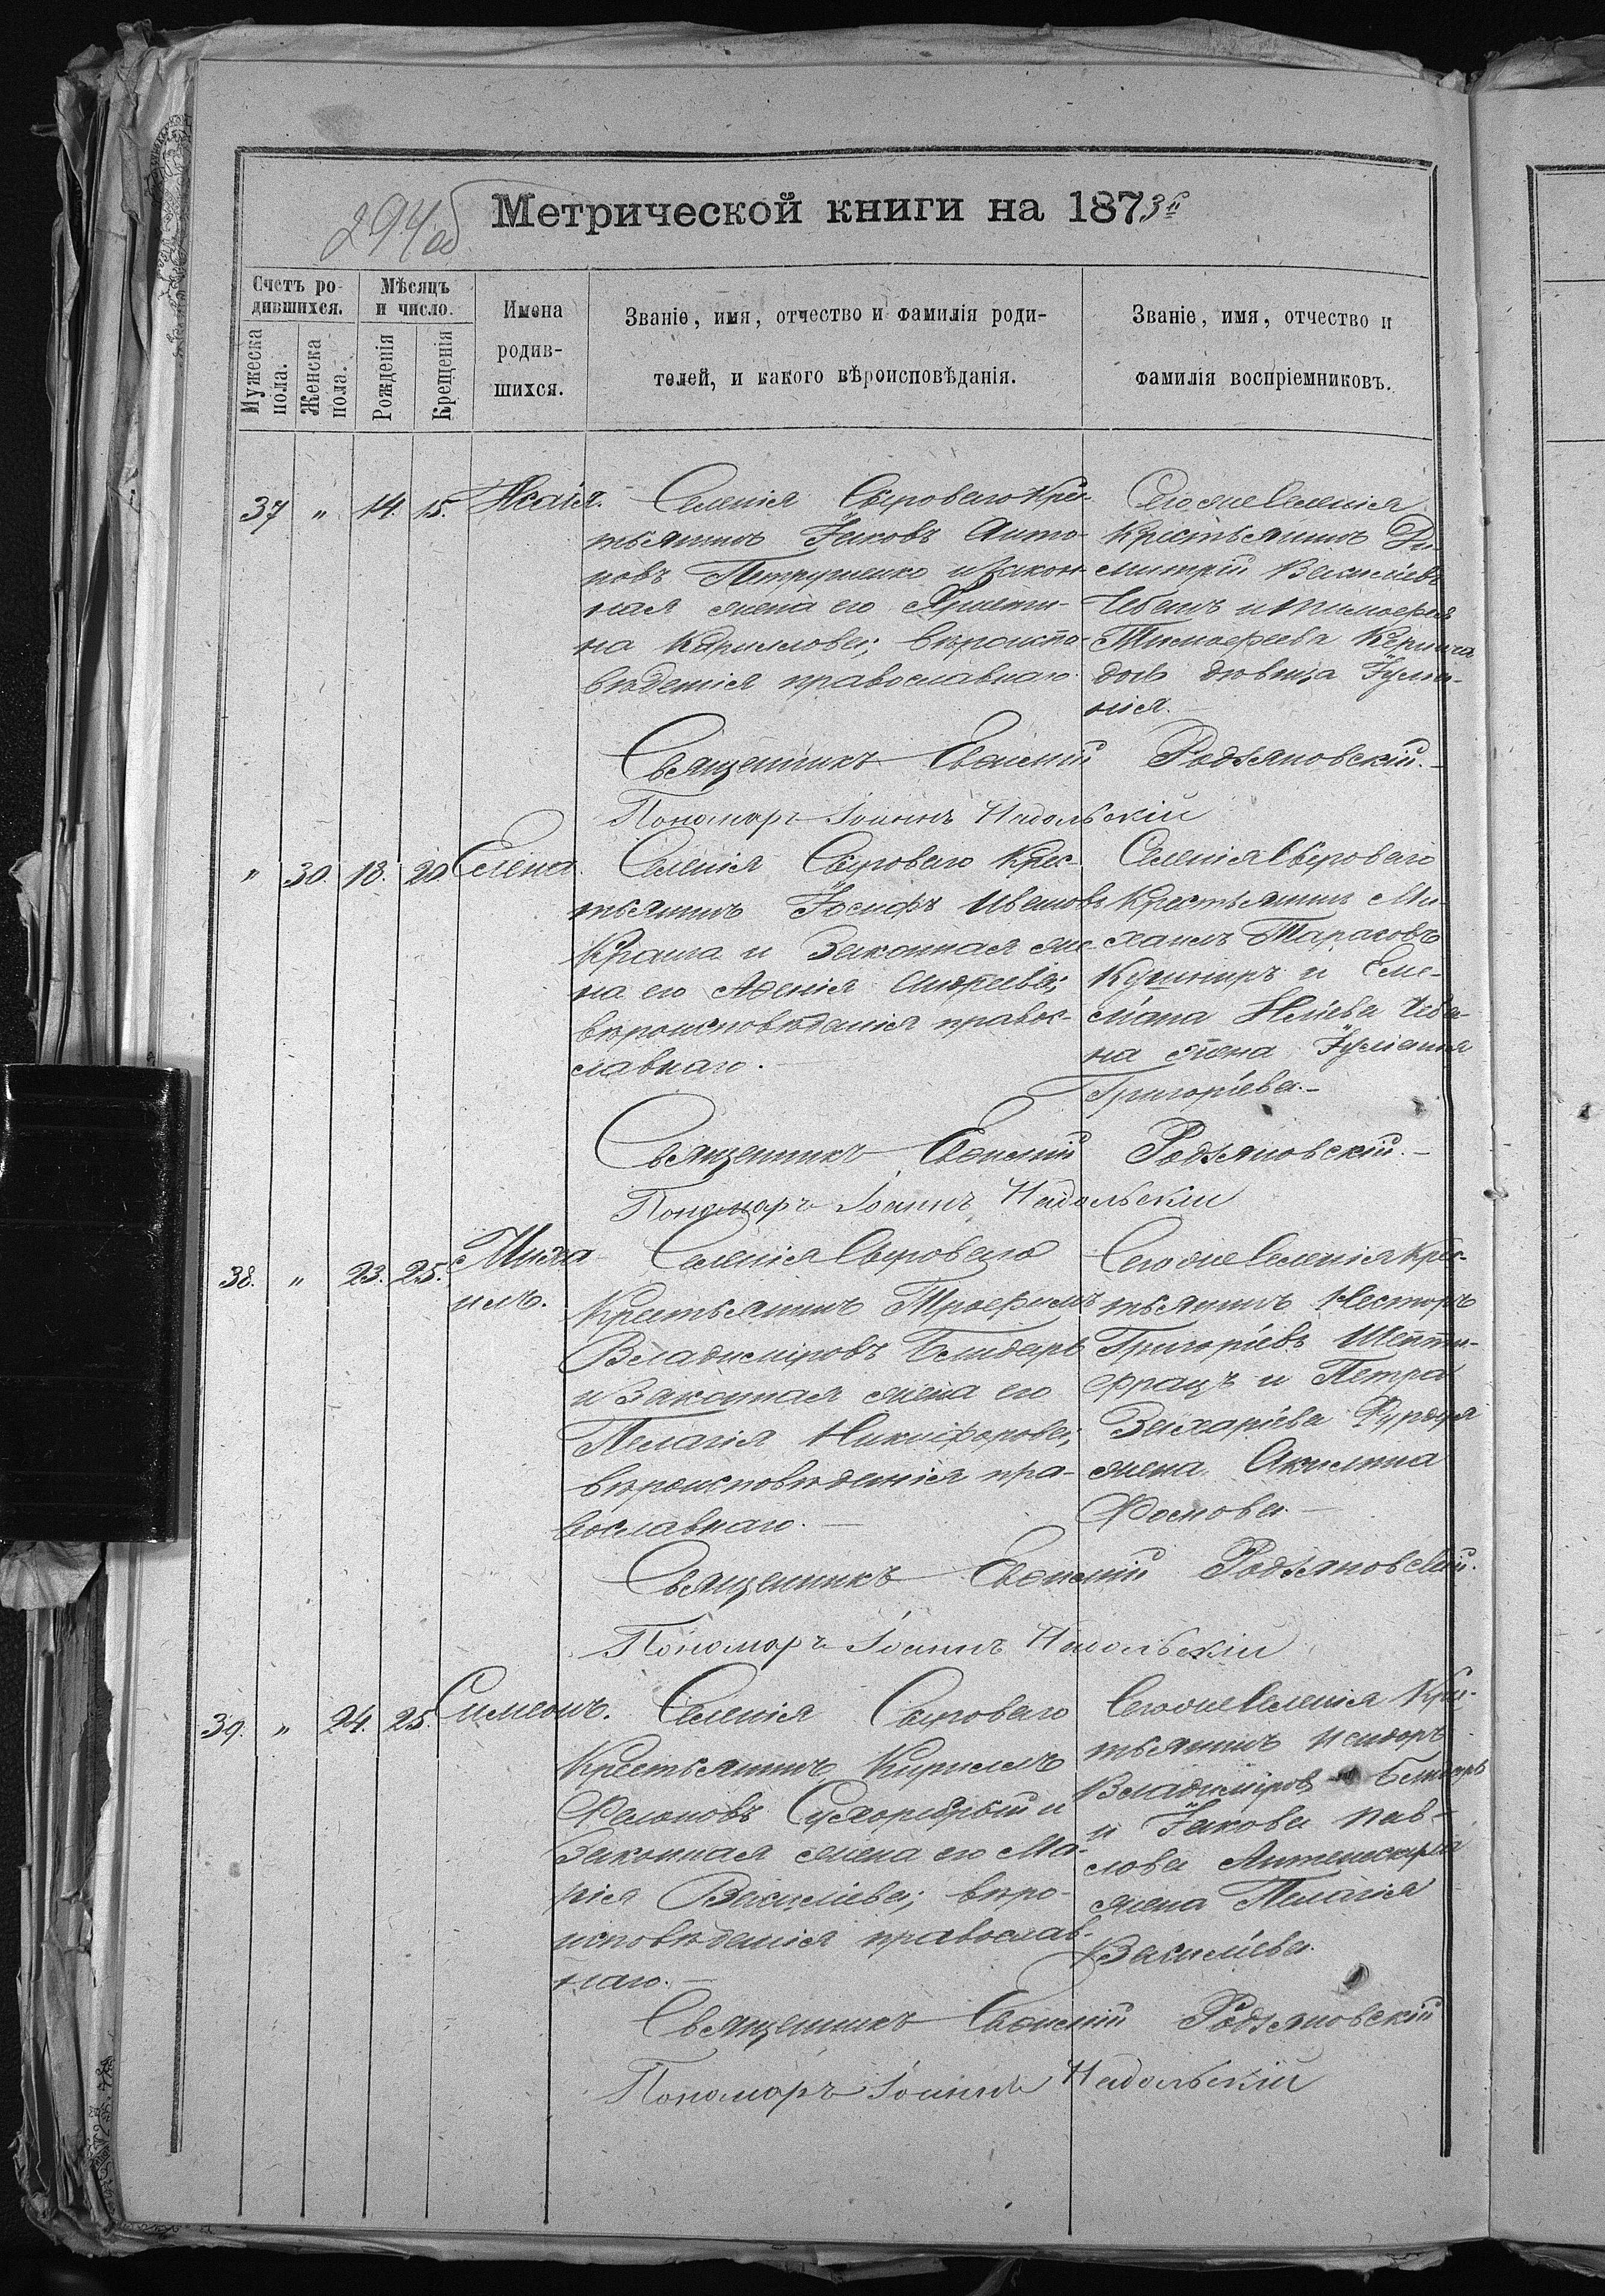 294 об
Метрической книги на 1873й
Счетъ ро-
дившихся.
Мужеска пола.
Женска пола.
Мѣсяцъ
и число.
Рожденія
Крещенія
Имена
родив-
шихся.
Званіе, имя, отчество и фамилія роди-
телей, и какого вѣроисповѣданія.
Званіе, имя, отчество и
фамилія воспріемниковъ.
37 " 14. 15. Исаія.
Селенія Сырового Крес-
тьянинъ Іаковъ Анто-
новъ Петрушенко и закон-
ная жена его Христи-
на Кириллова; вѣроиспо-
вѣданія православнаго
Тогоже Селенія
Крестьянинъ Ди-
митрій Васильевъ
Чебанъ и Тимофея
Тимофеева
дочь дѣвица Іулі-
нія.
Священникъ Евѳимій Родзяновскій.
Пономарь Іоаннъ Надольскій
" 30. 18. 20. Елена.
Селенія Сырового Крес-
тьянинъ Іосифъ Ивановъ
и Законная же-
на его Ксенія Андреева;
вѣроисповѣданія правос-
лавнаго.
Селенія Сырового
Крестьянинъ Ми-
хаилъ Тарасовъ
Кушниръ и Еме-
ліана Иліева Чеба-
на жена Іуліанія
Григоріева.
Священникъ Евѳимій Родзяновскій.
Пономарь Іоаннъ Надольскій
38. " 23. 25. Миха-
илъ.
Селенія Сырового
Крестьянинъ Трофимъ
Владиміровъ Бондарь
и Законная жена его
Пелагія Никифорова;
вѣроисповѣданія пра-
вославнаго.
Тогоже Селенія Крес-
тьянинъ Несторъ
Григоріевъ
и Петра
Захаріева
жена Акилина
Фомова.
Священникъ Евѳимій Родзяновскій.
Пономарь Іоаннъ Надольскій
39. " 24. 25. Симеонъ.
Селенія Сырового
Крестьянинъ Кириллъ
и
Законная жена его Ма-
рія Васильева; вѣро-
исповѣданія православ-
наго.
Тогоже Селенія Крес-
тьянинъ Исидоръ
Владиміровъ Бондарь
и Іакова Пав-
лова
жена Пелагія
Васильева.
Священникъ Евѳимій Родзяновскій
Пономарь Іоаннъ Надольскій